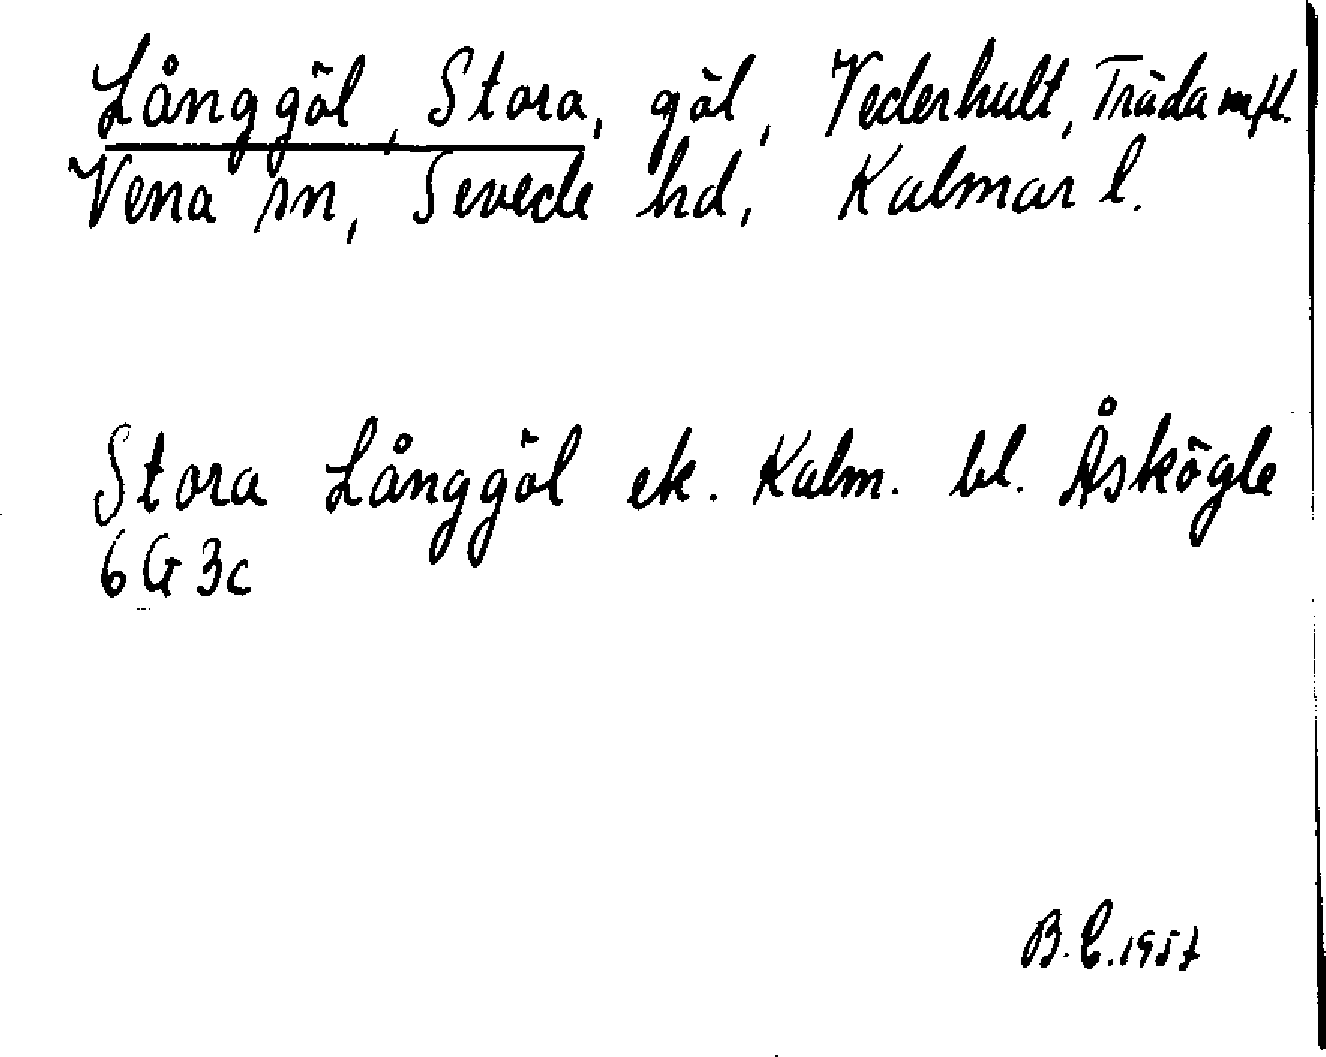 Långgöl, Stora, göl, Vederhult, Träda mfl.
Vena sn, Sevede hd, Kalmar l.
Stora Långgöl ek. Kalm. bl. Åskögle
6G 3c
B.E. 1957